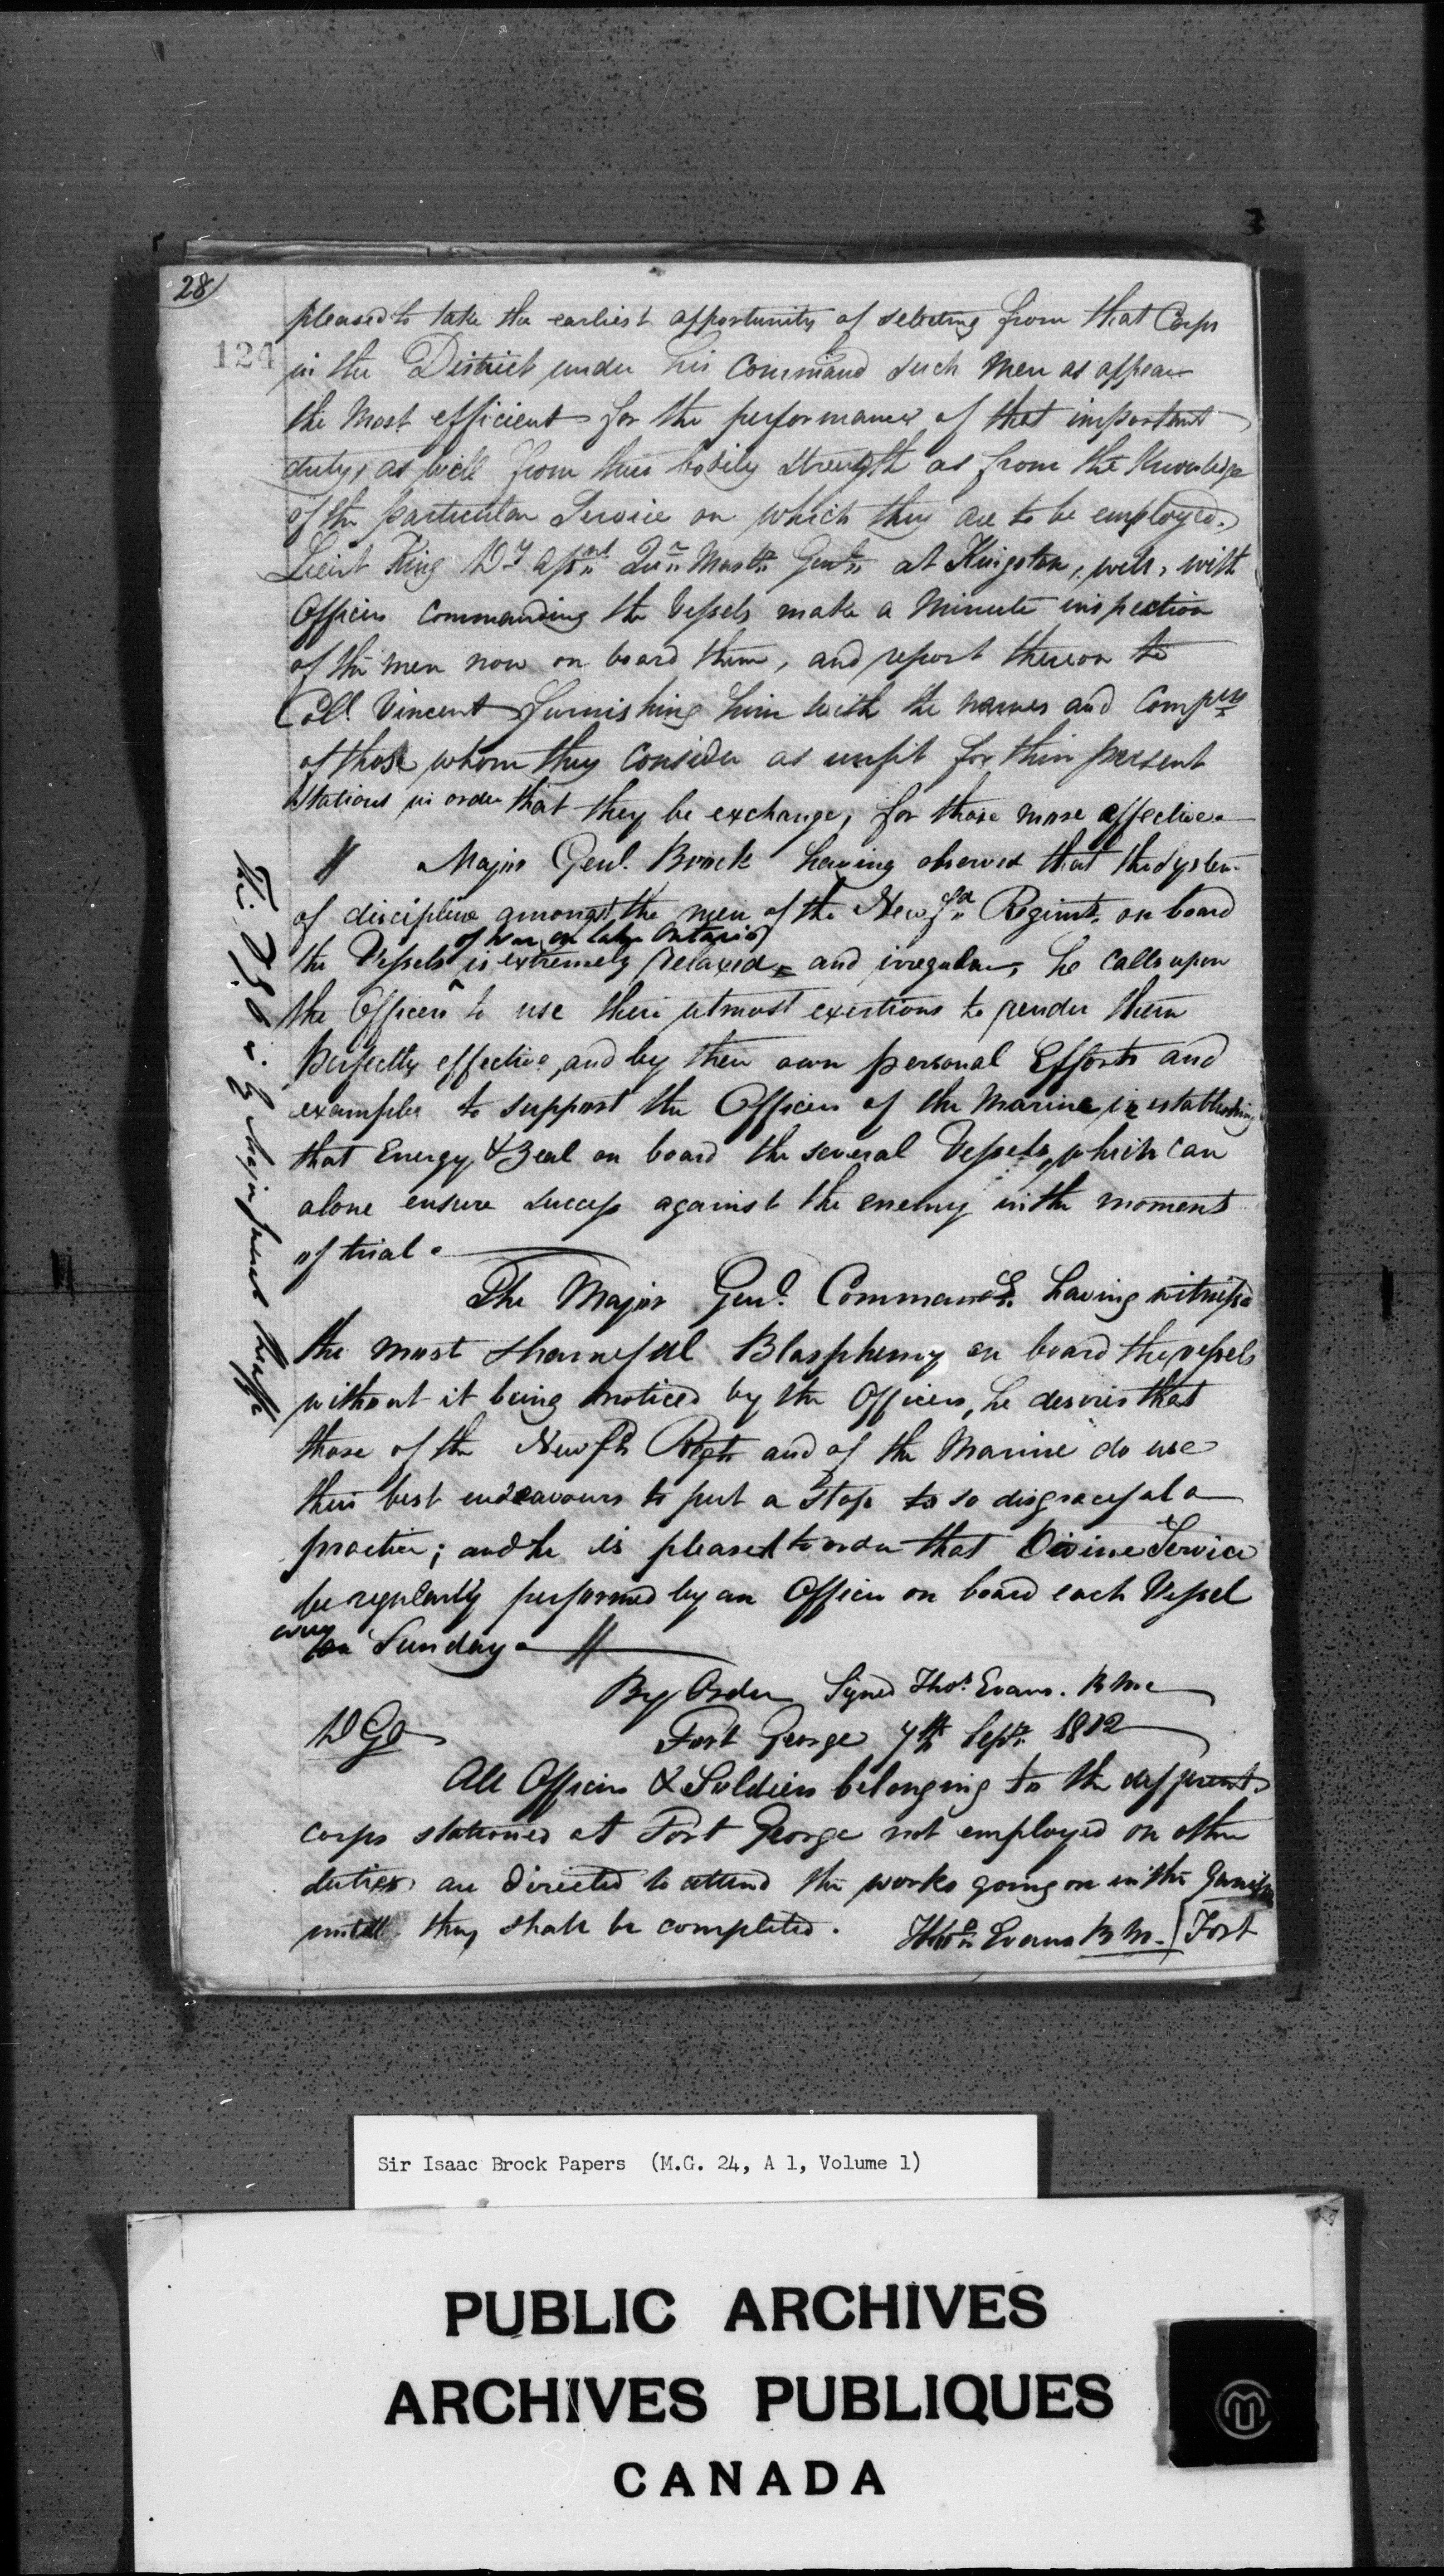 28
124
pleased to take the earliest opportunity of selecting from that Corps
in the District under his Command such Men as appear
the Most efficient for the performance of that important
duty, as well from their bodily strength as from the Knowledge
of the particular Service on which they are to be employed.
Lieut King Dy Qur Mastr Genl at Kingston, will, with
Officers Commanding the Vessels make a Minute inspection
of the men now on board them, and report thereon to
Coll. Vincent furnishing him with the names and Compys
of those whom they Consider as unfit for their present
Stations in order that they be exchange, for those more effective
// Major Genl. Brock having observed that the System
of discipline amongst the men of the Newfd Regimt. on board
of War on Lake Ontario
the Vessels ^ is extremely relaxed and irregular, he calls upon
the Officers to use their utmost exertions to render them
Perfectly effective, and by their own personal Efforts and
examples to support the Officers of the Marine in establishing
that Energy & Zeal on board the several Vessels, which can
alone ensure success against the enemy in the moment
of trial.
The Major Genl. Commandg. having witnessd
the most shameful Blasphemy on board the vessels
without it being noticed by the Officers, he desires that
those of the Newfd Regt. and of the Marine do use
their best endeavours to put a Stop to so disgraceful a
practice; and he is pleased to order that Divine Service
be regularly performed by an Officer on board each Vessel
every
on Sunday. //
By Order Signed Thos. Evans. B Mr
D GO Fort George 7th Septr. 1812
All Officers & Soldiers belonging to the different
corps stationed at Fort George not employed on other
duties are directed to attend the works going on in the Garrison
untill they shall be completed. Thos. Evans B M. [Fort
The DGO by Major Genl Sheaffe
Sir Isaac Brock Papers (M.G. 24, A 1, Volume 1)
PUBLIC ARCHIVES
ARCHIVES PUBLIQUES
CANADA